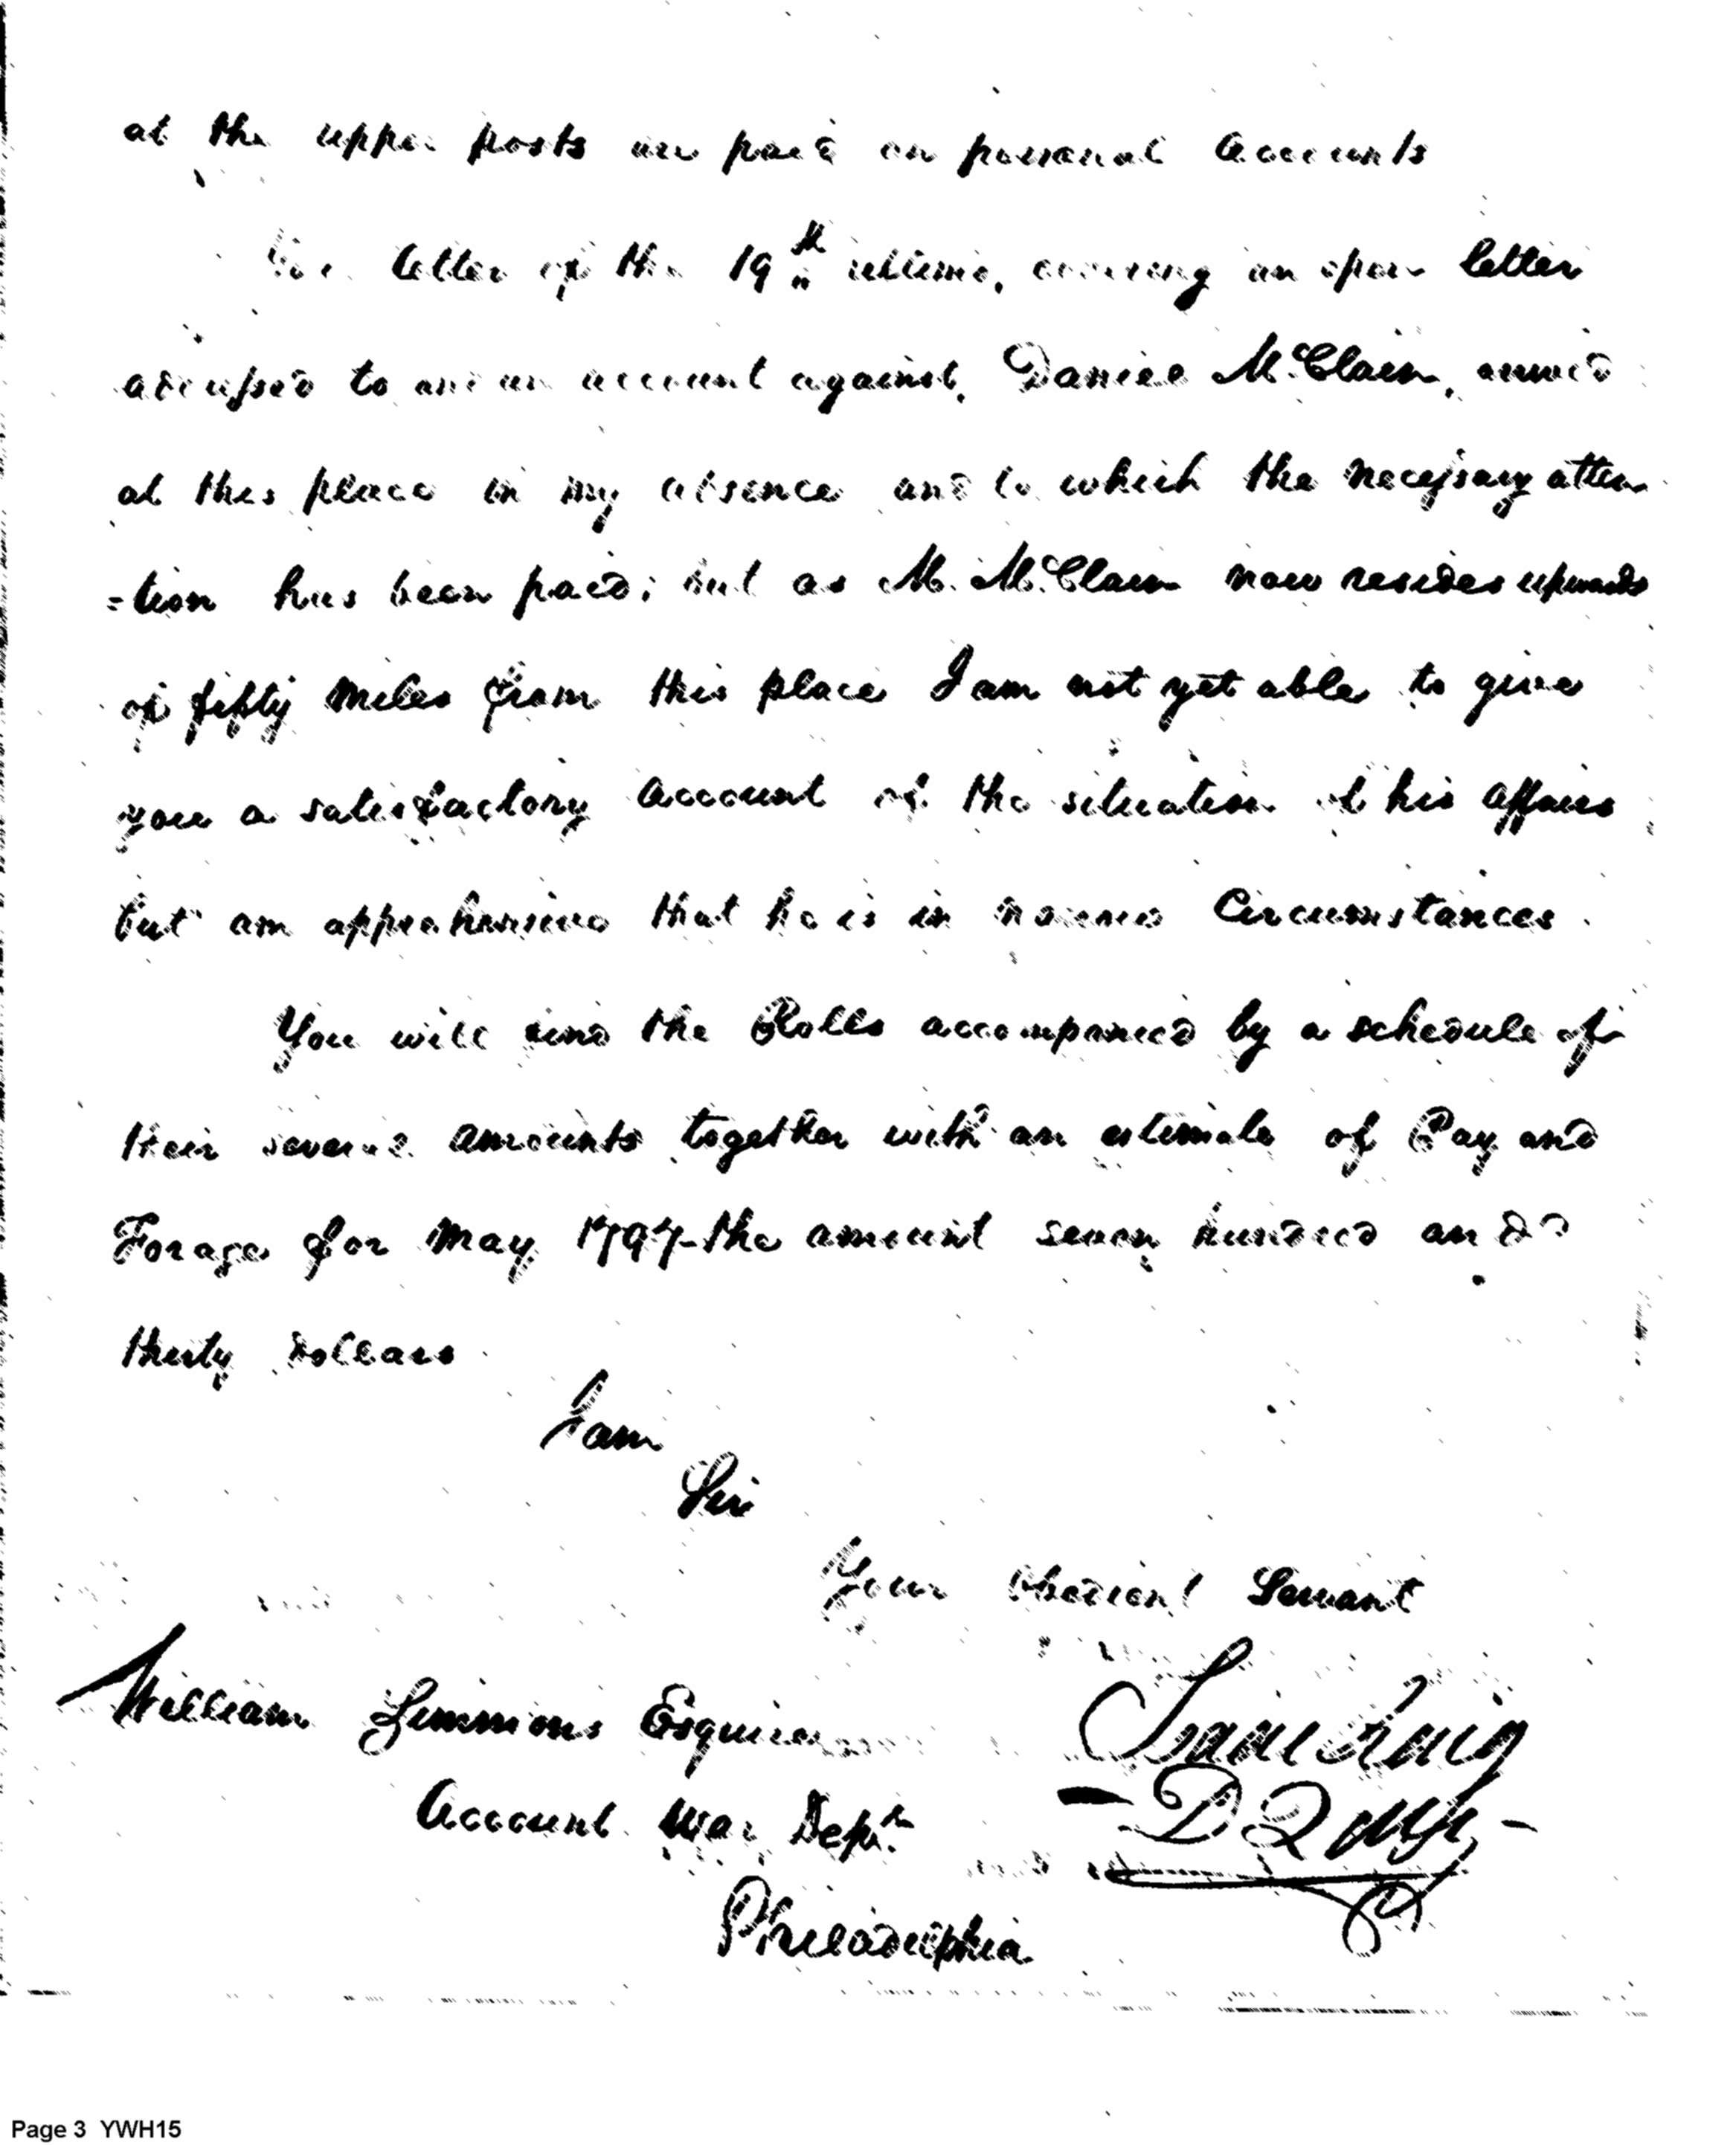 at the upper posts are paid on personal Accounts
Your letter of the 19th ultimo, covering an open letter
addressed to and an account against, Daniel McClain, arrived
at this place in my absence and to which the necessary atten
=tion has been paid; but as Mr. McClain now resides upwards
of fifty miles from this place I am not yet able to give
you a satisfactory account of the situation of his affairs
but am apprehensive that he is in Circumstances.
You will find the Rolls accompanied by a schedule of
their several amounts together with an estimate of Pay and
Forage for May 1797 the amount seven hundred and
thirty dollars
I am
Sir
Your Obedient Servant
William Simmons Esquire
Isaac Craig
Account. War Dept.
D Q M G
Philadelphia
Page 3 YWH15